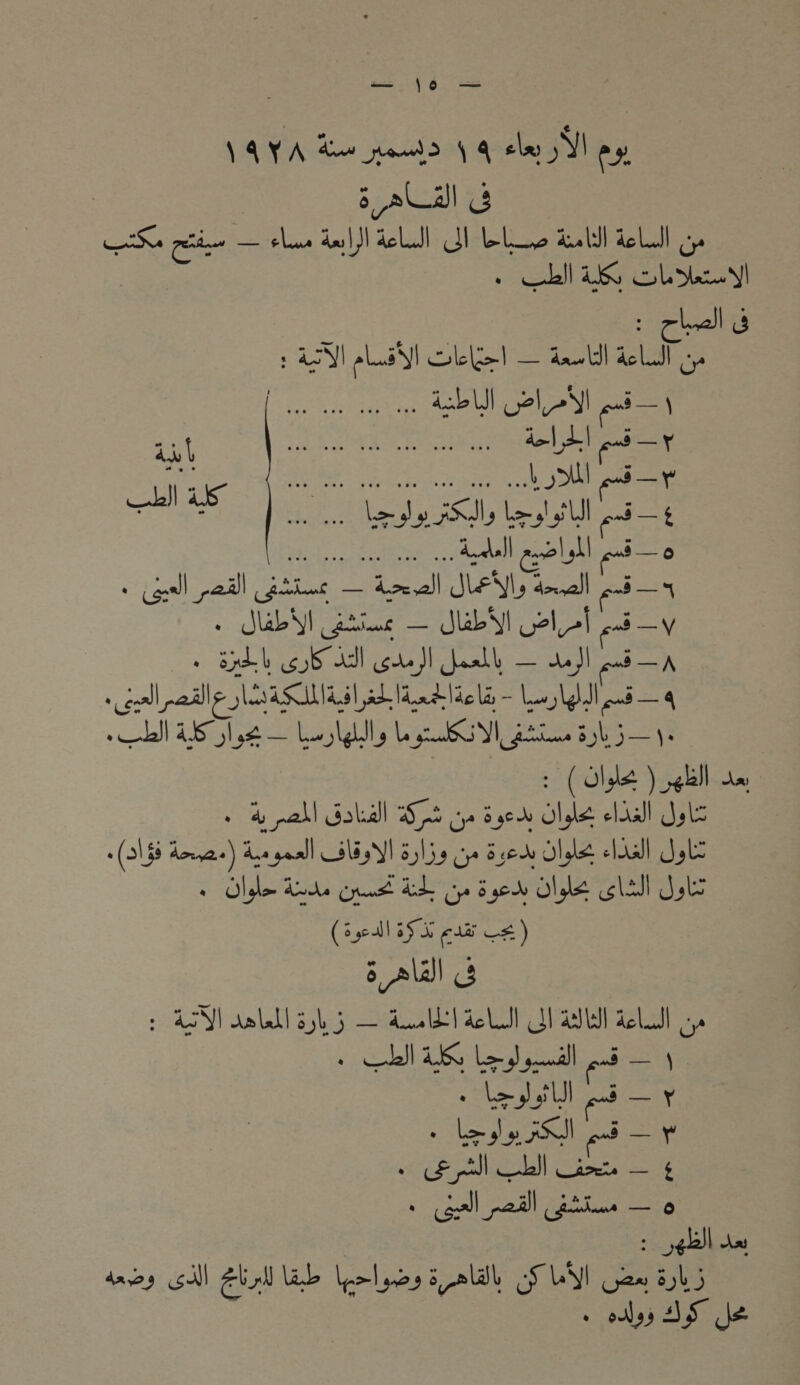 — ١٥ —
يوم الأربعاء ١٩ ديسمبر سنة ١٩٢٨
فى القاهرة
من الساعة الثامنة صباحا الى الساعة الرابعة مساء — سيفتح مكتب
الاستعلامات بكلية الطب .
فى الصباح :
من الساعة التاسعة — اجتماعات الأقسام الآتية :
١ — قسم الأمراض الباطنية ... ... ... ...
٢ — قسم الجراحة ... ... ... ... ... ... ...
٣ — قسم الملاريا ... ... ... ... ... ... ...
٤ — قسم الباثولوجيا والبكتريولوجيا ... ...
٥ — قسم المواضيع العلمية ... ... ... ... ...
بأبنية
كلية الطب
٦ — قسم الصحة والأعمال الصحية — بمستشفى القصر العينى .
٧ — قسم أمراض الأطفال — بمستشفى الأطفال .
٨ — قسم الرمد — بالمعمل الرمدى التذكارى بالجيزة .
٩ — قسم البلهارسيا - بقاعة الجمعية الجغرافية الملكية بشارع القصر العينى .
١٠ — زيارة مستشفى الانكلستوما والبلهارسيا — بجوار كلية الطب .
بعد الظهر ( بحلوان ) :
تناول الغذاء بحلوان بدعوة من شركة الفنادق المصرية .
تناول الغذاء بحلوان بدعوة من وزارة الاوقاف العمومية (مصحة فؤاد) .
تناول الشاى بحلوان بدعوة من لجنة تحسين مدينة حلوان .
( يجب تقديم تذكرة الدعوة )
فى القاهرة
من الساعة الثالثة الى الساعة الخامسة — زيارة المعاهد الآتية :
١ — قسم الفسيولوجيا بكلية الطب .
٢ — قسم الباثولوجيا .
٣ — قسم البكتريولوجيا .
٤ — متحف الطب الشرعى .
٥ — مستشفى القصر العينى .
بعد الظهر :
زيارة بعض الأماكن بالقاهرة وضواحيها طبقا للبرنامج الذى وضعه
محل كوك وولده .